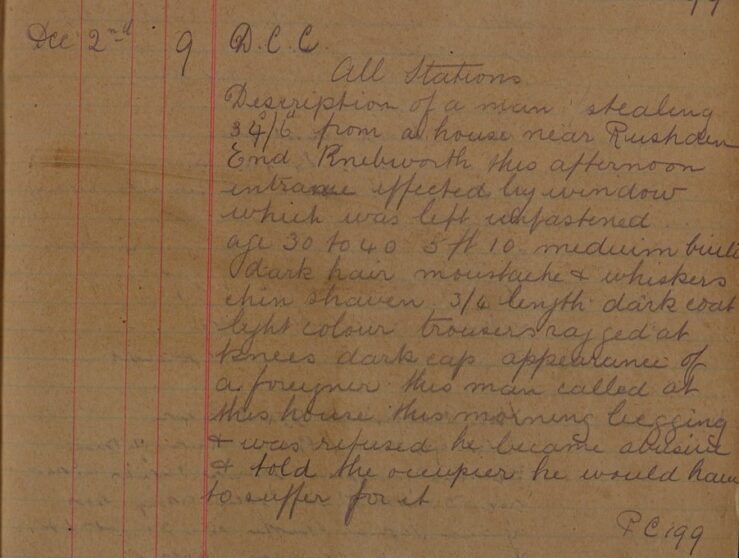 Dec 2nd 9 D.C.C.
All Stations
Description of a man stealing
34/6 from a house near Rushden
End Knebworth this afternoon
entrance effected by window
which was left unfastened
age 30 to 40 5 ft 10 meduim built
dark hair moustache & whiskers
chin shaven 3/4 length dark coat
light colour trousers ragged at
knees dark cap appearance of
a foreigner this man called at
this house this morning begging
& was refused he became abusive
& told the occupier he would have
to suffer for it
P.C. 199